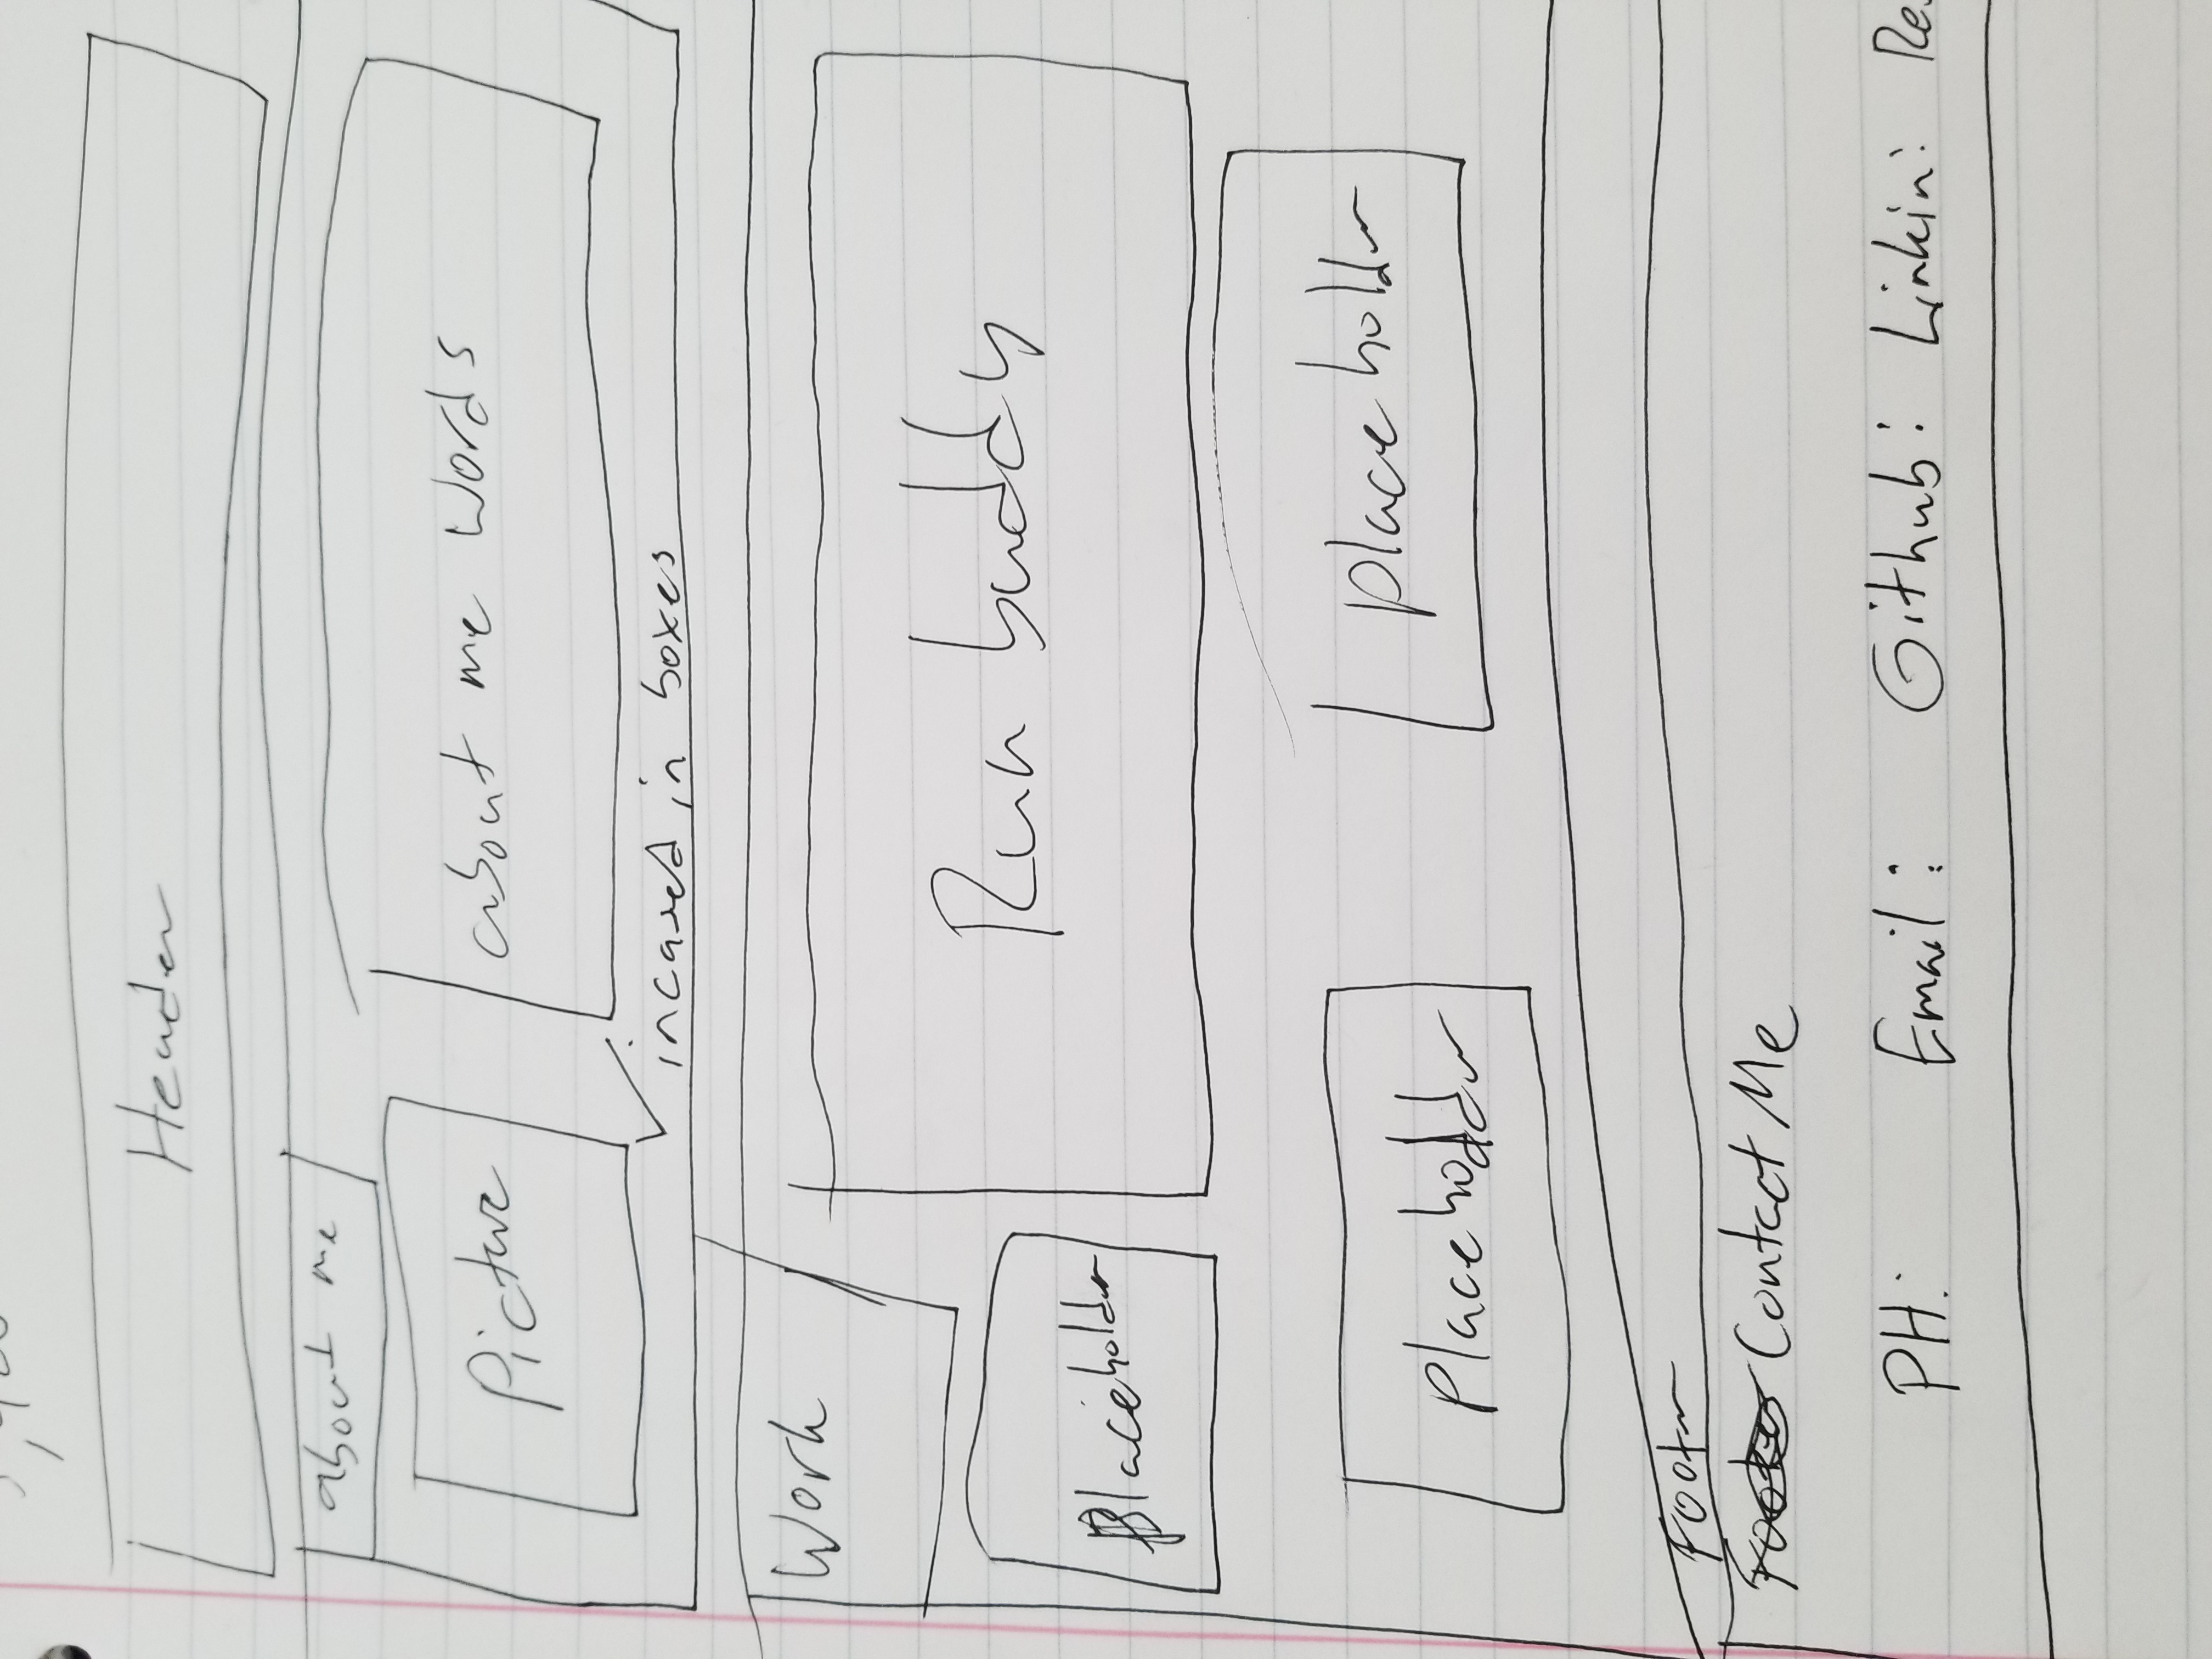 Header
about me
Picture
about me words
incased in boxes
Work
Run buddy
Placeholder
placeholder
placeholder
Footer
Contact Me
PH: Email: Github: Linkin: